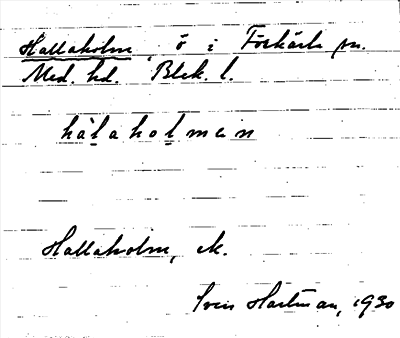 Hallaholm, ö i Förkärla sn.
Med. hd. Blek. l.
hàlaholmen
Hallaholm, ek.
Sven Hartman, 1930